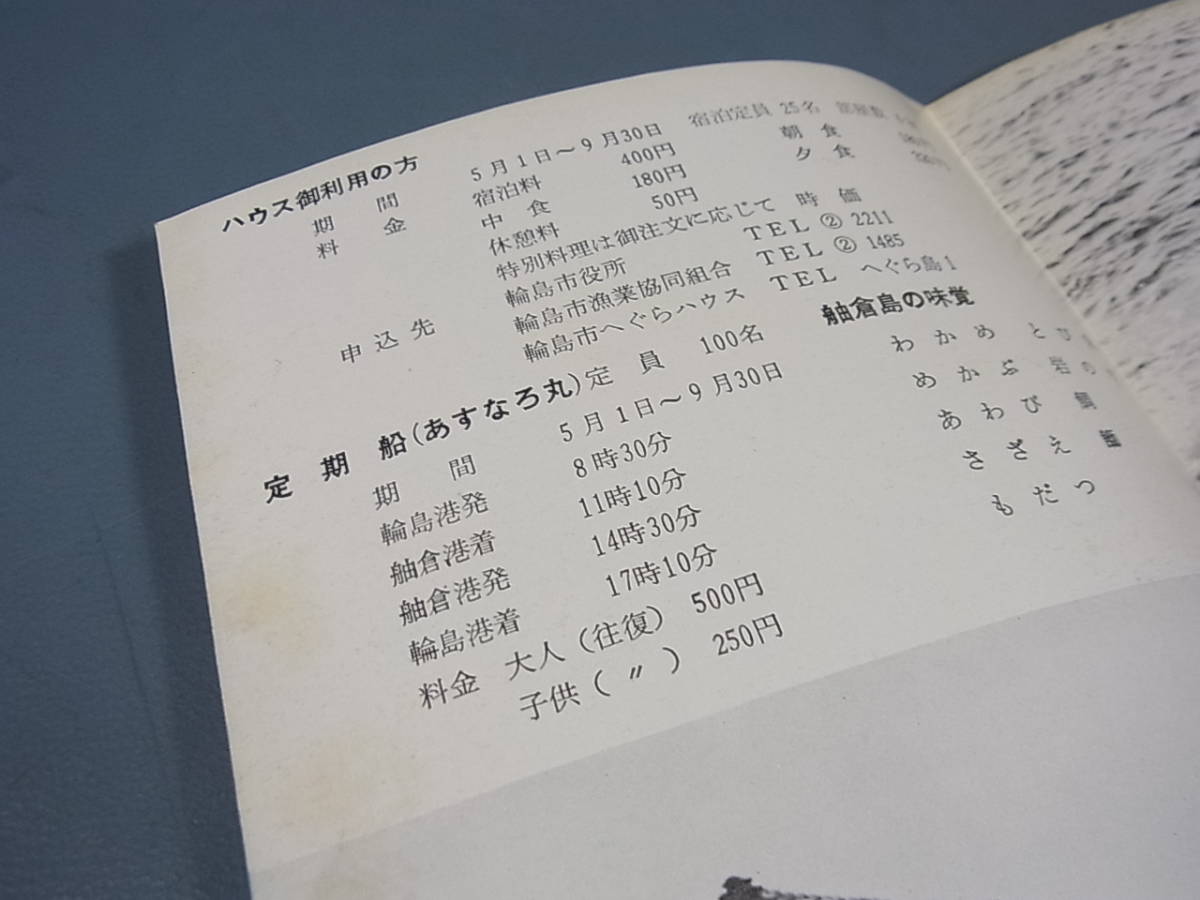 ハウス御利用の方
期間 5月1日～9月30日 宿泊定員 25名 部屋数
料金 宿泊料 400円 朝食
中食 180円 夕食
休憩料 50円
特別料理は御注文に応じて 時価
申込先 輪島市役所 TEL ② 2211
輪島市漁業協同組合 TEL ② 1485
輪島市へぐらハウス TEL へぐら島1
定期船(あすなろ丸)定員 100名
期間 5月1日～9月30日
輪島港発 8時30分
舳倉港着 11時10分
舳倉港発 14時30分
輪島港着 17時10分
料金 大人(往復) 500円
子供( 〃 ) 250円
舳倉島の味覚
わかめ
めかぶ 岩の
あわび 鯛
さざえ
もだつ